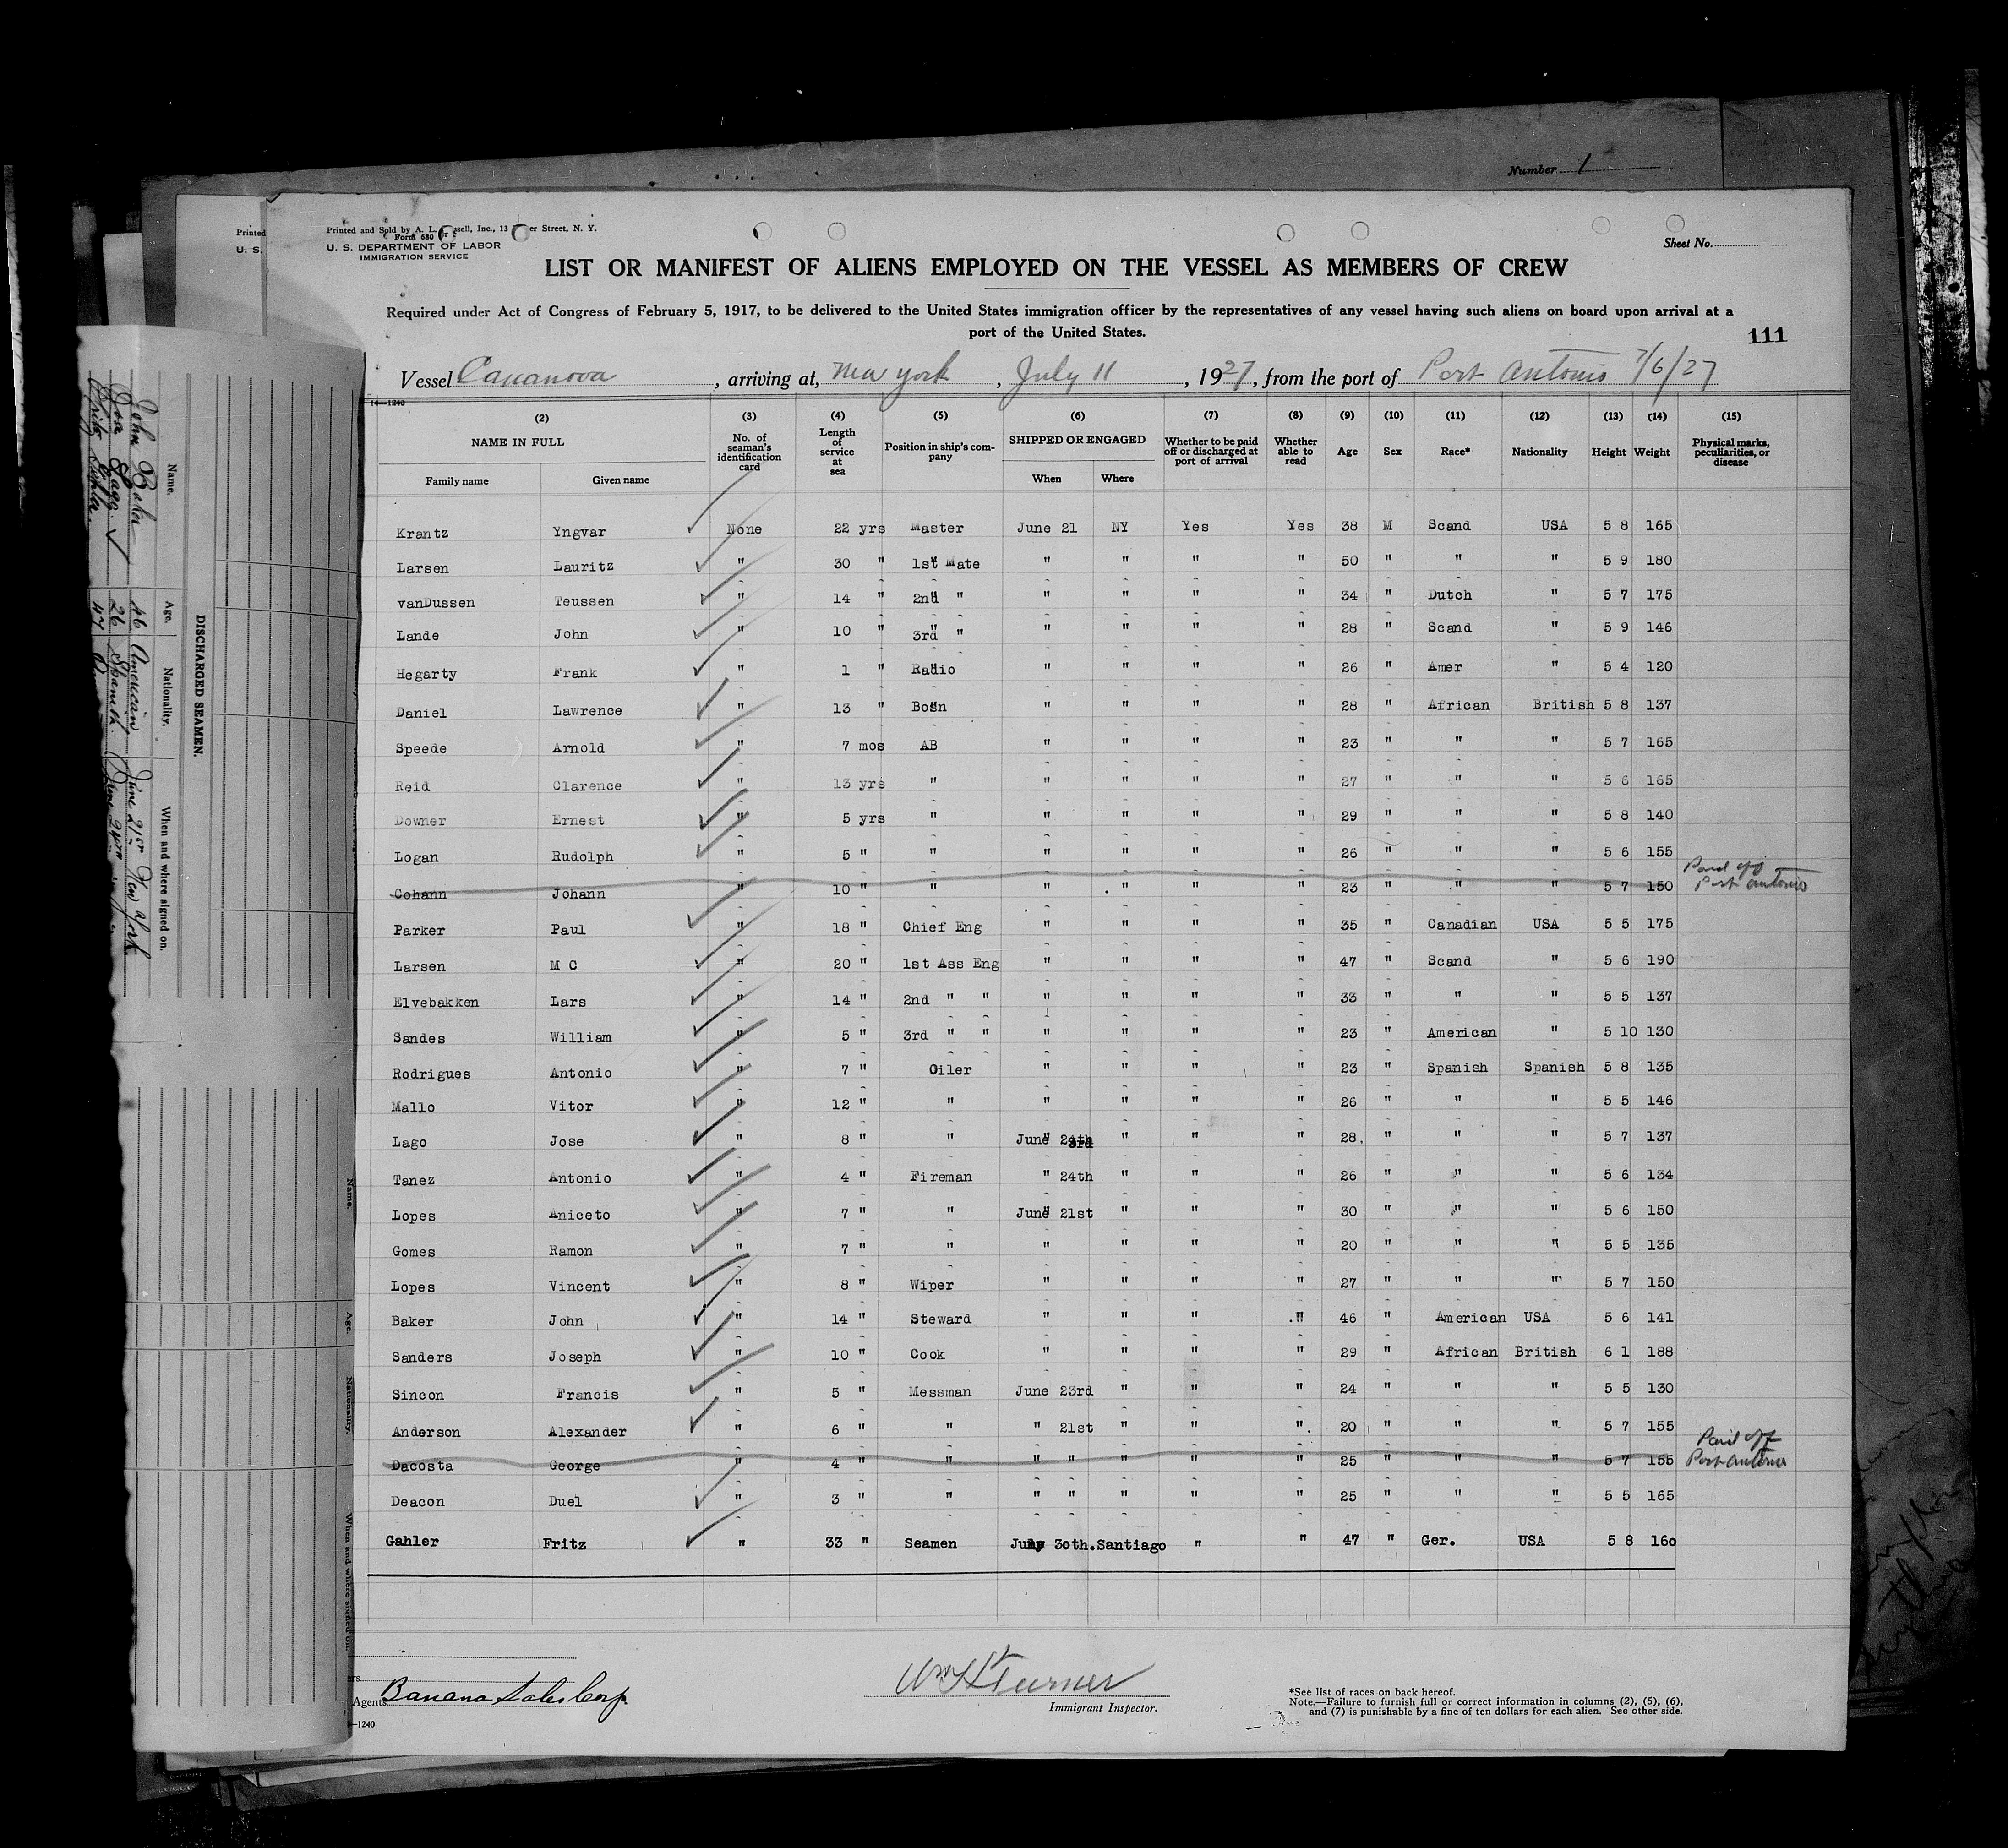 Number 1
Printed
U. S.
Printed and Sold by A. L. sell, Inc., 13 er Street, N. Y.
Form 680
U. S. DEPARTMENT OF LABOR
IMMIGRATION SERVICE
Sheet No.
LIST OR MANIFEST OF ALIENS EMPLOYED ON THE VESSEL AS MEMBERS OF CREW
Required under Act of Congress of February 5, 1917, to be delivered to the United States immigration officer by the representatives of any vessel having such aliens on board upon arrival at a
port of the United States.
111
Vessel Casanova, arriving at, New York, July 11, 1927, from the port of Port Antonio 7/6/27
14—1240
(2) (3) (4) (5) (6) (7) (8) (9) (10) (11) (12) (13) (14) (15)
NAME IN FULL No. of seaman's identification card Length of service at sea Position in ship's company SHIPPED OR ENGAGED Whether to be paid off or discharged at port of arrival Whether able to read Age Sex Race* Nationality Height Weight Physical marks, peculiarities, or disease
Family name Given name When Where
Krantz Yngvar None 22 yrs Master June 21 NY Yes Yes 38 M Scand USA 5 8 165
Larsen Lauritz " 30 " 1st Mate " " " " 50 " " " 5 9 180
vanDussen Teussen " 14 " 2nd " " " " " 34 " Dutch " 5 7 175
Lande John " 10 " 3rd " " " " " 28 " Scand " 5 9 146
Hegarty Frank " 1 " Radio " " " " 26 " Amer " 5 4 120
Daniel Lawrence " 13 " Bosn " " " " 28 " African British 5 8 137
Speede Arnold " 7 mos AB " " " " 23 " " " 5 7 165
Reid Clarence " 13 yrs " " " " " 27 " " " 5 6 165
Downer Ernest " 5 yrs " " " " " 29 " " " 5 8 140
Logan Rudolph " 5 " " " " " " 26 " " " 5 6 155
Cohann Johann " 10 " " " " " " 23 " " " 5 7 150 Paid off Port Antonio
Parker Paul " 18 " Chief Eng " " " " 35 " Canadian USA 5 5 175
Larsen M C " 20 " 1st Ass Eng " " " " 47 " Scand " 5 6 190
Elvebakken Lars " 14 " 2nd " " " " " " 33 " " " 5 5 137
Sandes William " 5 " 3rd " " " " " " 23 " American " 5 10 130
Rodrigues Antonio " 7 " Oiler " " " " 23 " Spanish Spanish 5 8 135
Mallo Vitor " 12 " " " " " " 26 " " " 5 5 146
Lago Jose " 8 " " June 3rd " " " 28. " " " 5 7 137
Tanez Antonio " 4 " Fireman " 24th " " " 26 " " " 5 6 134
Lopes Aniceto " 7 " " June 21st " " " 30 " " " 5 6 150
Gomes Ramon " 7 " " " " " " 20 " " " 5 5 135
Lopes Vincent " 8 " Wiper " " " " 27 " " " 5 7 150
Baker John " 14 " Steward " " " " 46 " American USA 5 6 141
Sanders Joseph " 10 " Cook " " " " 29 " African British 6 1 188
Sincon Francis " 5 " Messman June 23rd " " " 24 " " " 5 5 130
Anderson Alexander " 6 " " " 21st " " " 20 " " " 5 7 155
Dacosta George " 4 " " " " " " " 25 " " " 5 7 155 Paid off Port Antonio
Deacon Duel " 3 " " " " " " " 25 " " " 5 5 165
Gahler Fritz " 33 " Seamen 30th. Santiago " " 47 " Ger. USA 5 8 160
Agents Banana Sales Corp.
—1240
Wm H Turner
Immigrant Inspector.
*See list of races on back hereof.
Note.—Failure to furnish full or correct information in columns (2), (5), (6),
and (7) is punishable by a fine of ten dollars for each alien. See other side.
DISCHARGED SEAMEN.
Name. Age. Nationality. When and where signed on.
John Baker 46 American June 21st New York
26 Spanish June 24th
Fritz 47
Name. Age. Nationality. When and where signed on.